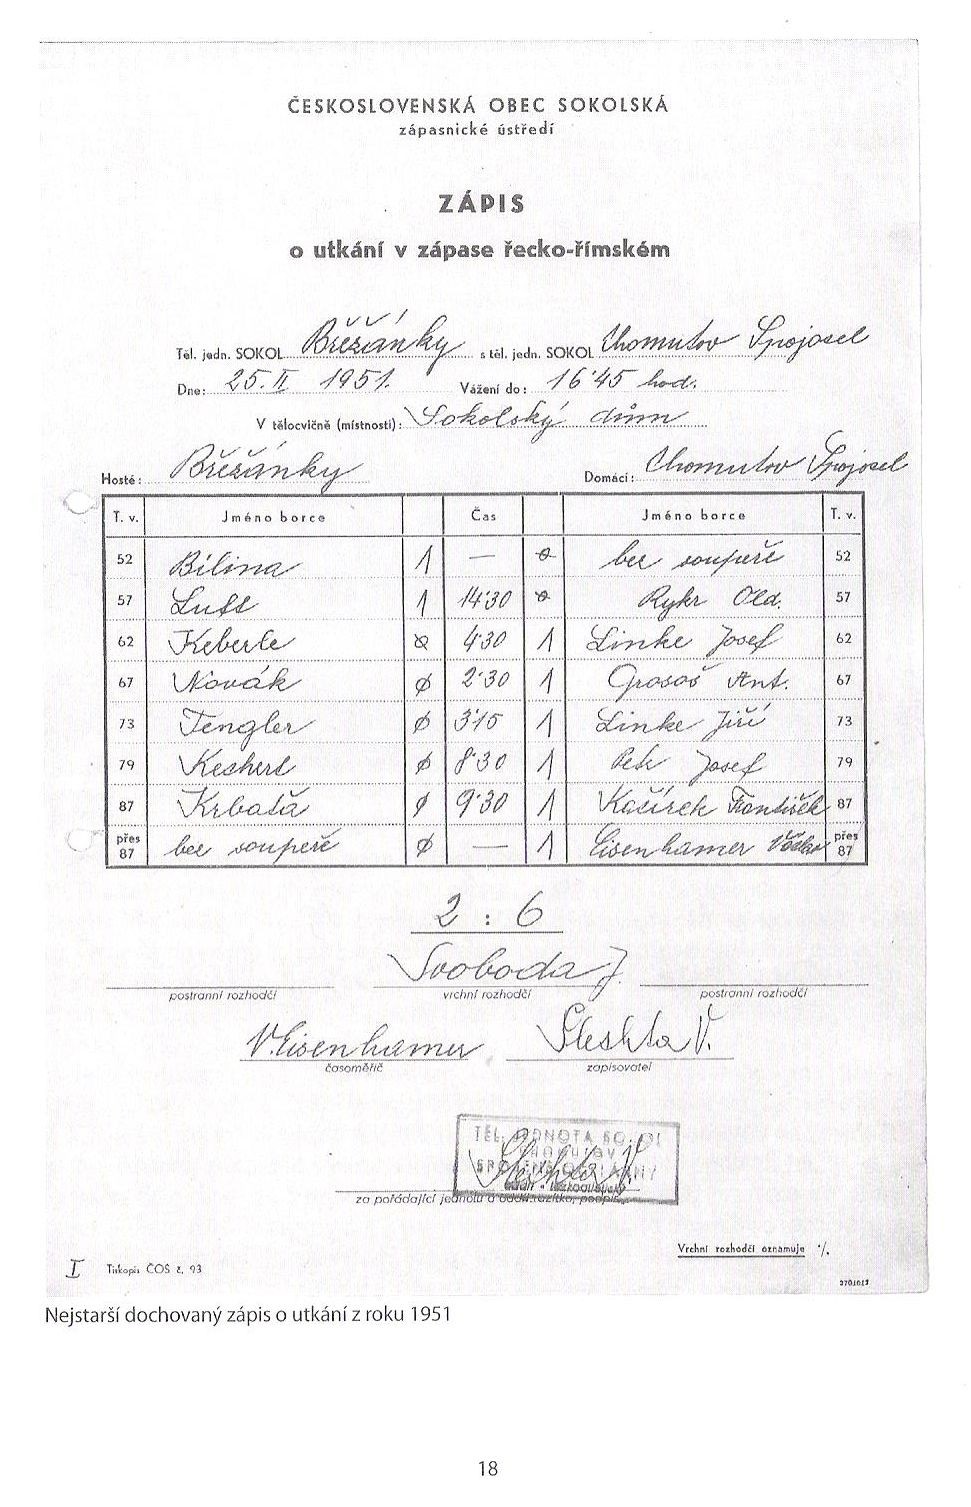 ČESKOSLOVENSKÁ OBEC SOKOLSKÁ
zápasnické ústředí
ZÁPIS
o utkání v zápase řecko-římském
Těl. jedn. SOKOL Břežánky s těl. jedn. SOKOL Chomutov Spojocel
Dne: 25. II 1951. Vážení do: 16'45 hod.
V tělocvičně (místnosti): Sokolský dům
Hosté: Břežánky Domácí: Chomutov Spojocel
T. v. Jméno borce Čas Jméno borce T. v.
52 Bílina 1 — 0 bez soupeře 52
57 Luft 1 14'30 0 Rykr Old. 57
62 Keberle 0 4'30 1 Linke Josef 62
67 Novák 0 2'30 1 Ant. 67
73 Tengler 0 3'15 1 Linke Jiří 73
79 0 8'30 1 Josef 79
87 Krbata 0 9'30 1 František 87
přes 87 bez soupeře 0 — 1 Eisenhamer přes 87
2 : 6
Svoboda J.
postranní rozhodčí vrchní rozhodčí postranní rozhodčí
V. Eisenhamer V.
časoměřič zapisovatel
TĚL. JEDNOTA
za pořádající jednotu a oddíl razítko, podpis
Vrchní rozhodčí oznamuje ·/.
I Tiskopis ČOS č. 93
Nejstarší dochovaný zápis o utkání z roku 1951
18